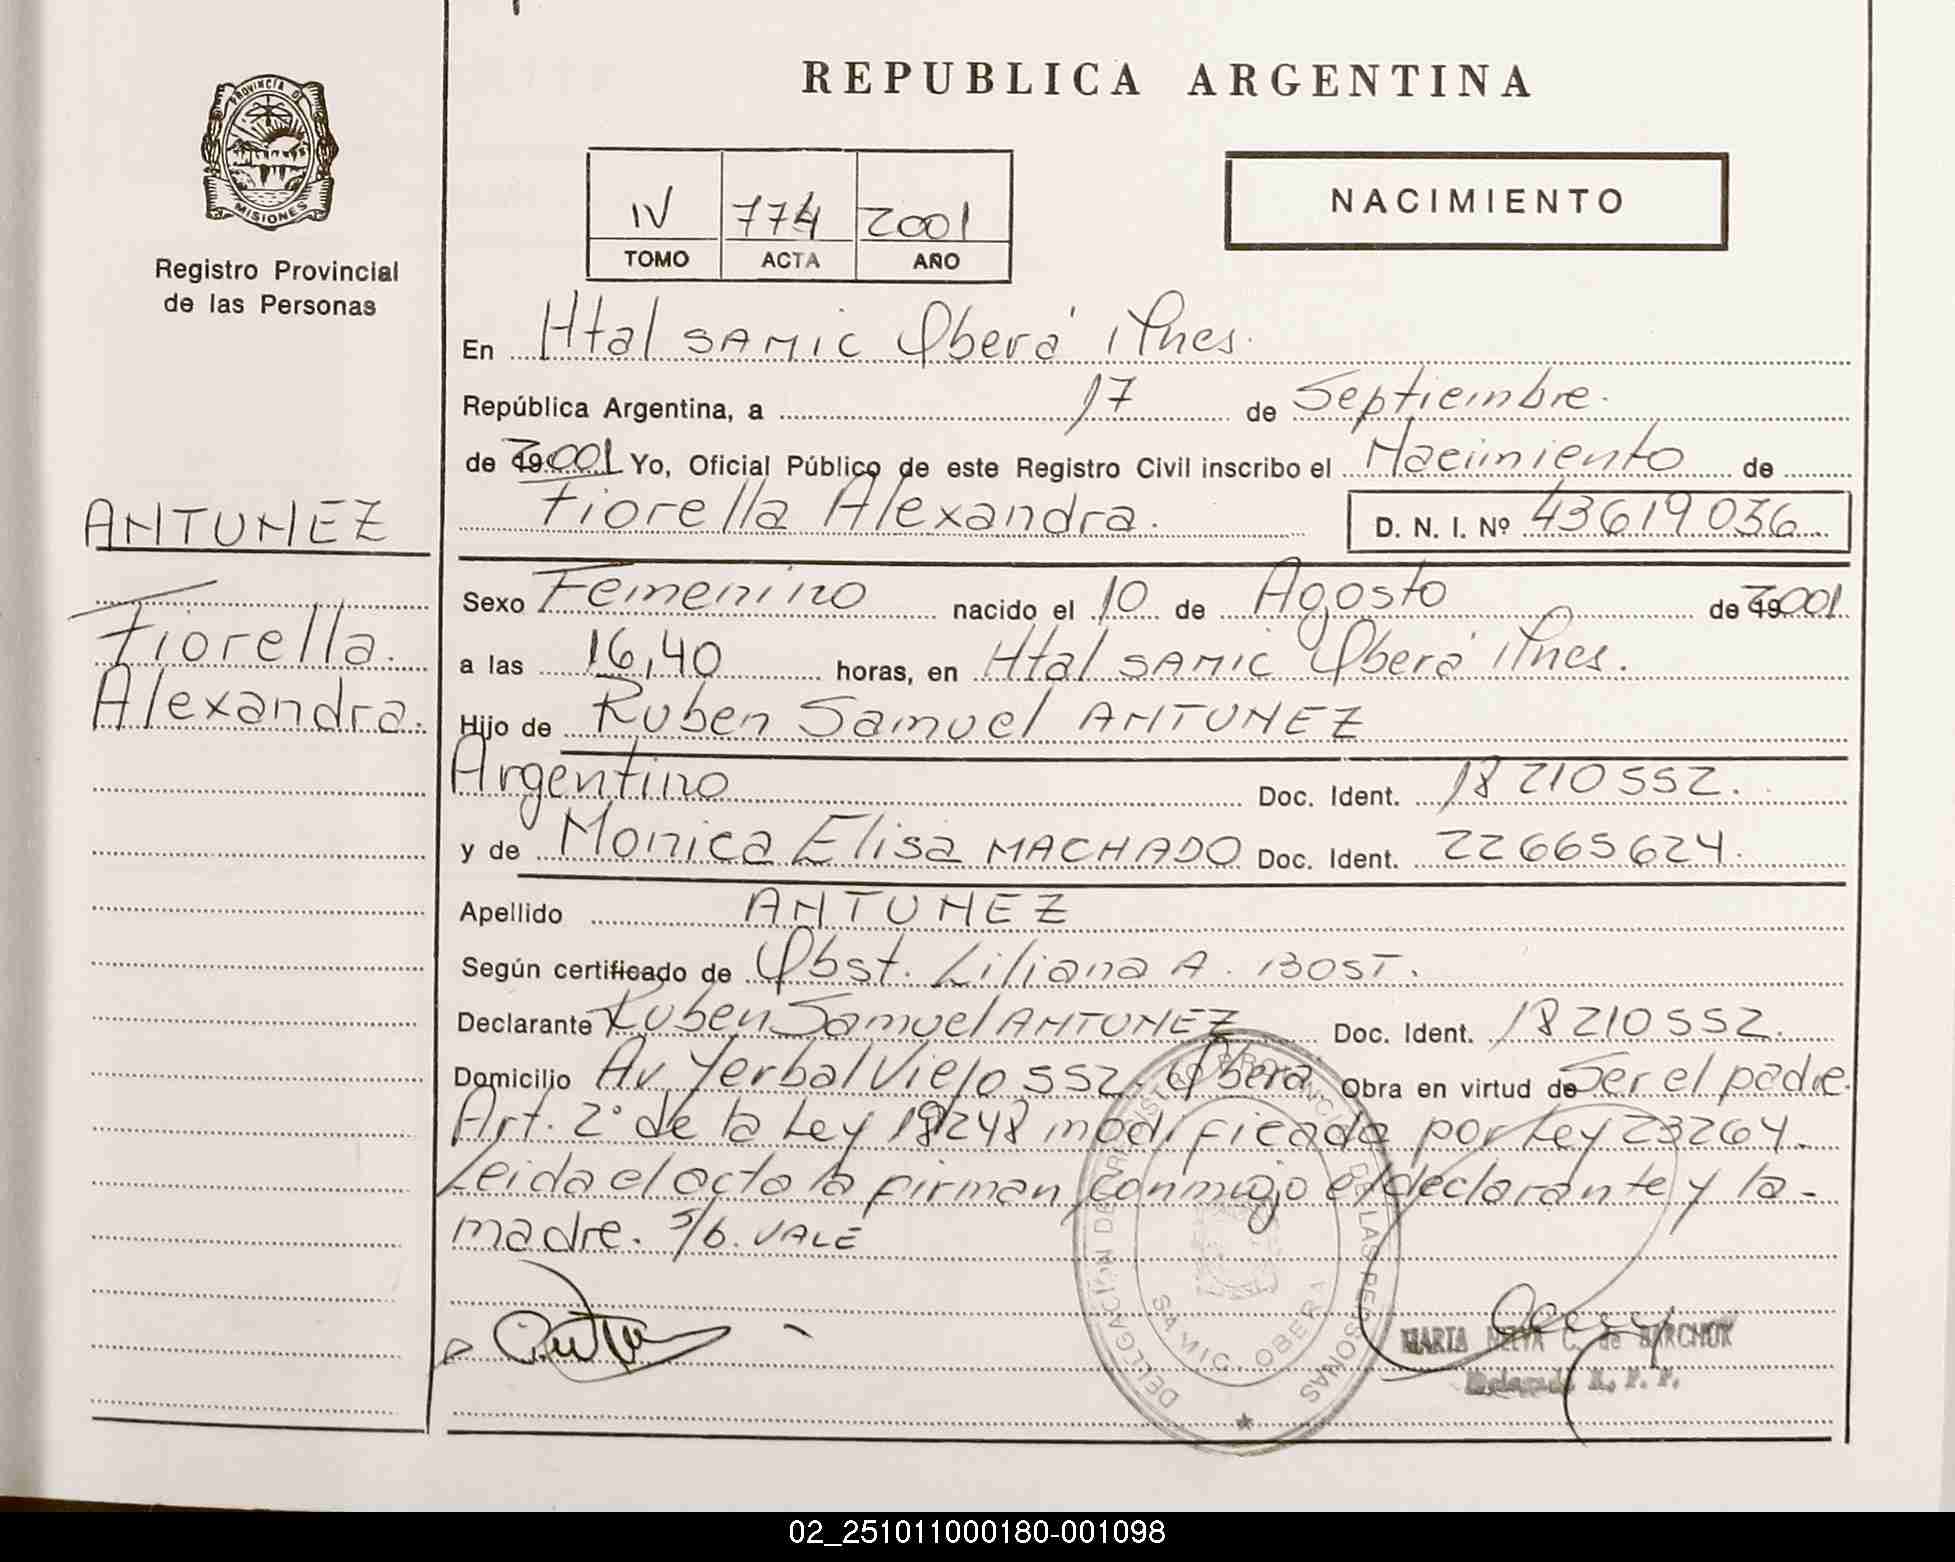 REPUBLICA ARGENTINA
PROVINCIA DE
MISIONES
Registro Provincial
de las Personas
IV 774 2001
TOMO ACTA AÑO
NACIMIENTO
En Htal SAMIC Oberá Mnes.
República Argentina, a 17 de Septiembre.
de 2001 Yo, Oficial Público de este Registro Civil inscribo el Nacimiento de
Fiorella Alexandra. D. N. I. Nº 43619036
ANTUNEZ
Fiorella
Alexandra.
Sexo Femenino nacido el 10 de Agosto de 2001
a las 16,40 horas, en Htal SAMIC Oberá Mnes.
Hijo de Ruben Samuel ANTUNEZ
Argentino Doc. Ident. 18210552.
y de Monica Elisa MACHADO Doc. Ident. 22665624.
Apellido ANTUNEZ
Según certificado de Obst. Liliana A. BOST.
Declarante Ruben Samuel ANTUNEZ Doc. Ident. 18210552.
Domicilio Av. Yerbal Viejo 552. Oberá Obra en virtud de Ser el padre.
Art. 2° de la Ley 18248 modificada por Ley 23264.
Leida el acta la firman conmigo el declarante y la
madre. S/b. VALE
DELEGACIÓN DE REGISTRO PROVINCIAL DE LAS PERSONAS
SAMIC. OBERA
MARTA NELYA C. de BARCHUK
Delegada R. P. P.
02_251011000180-001098